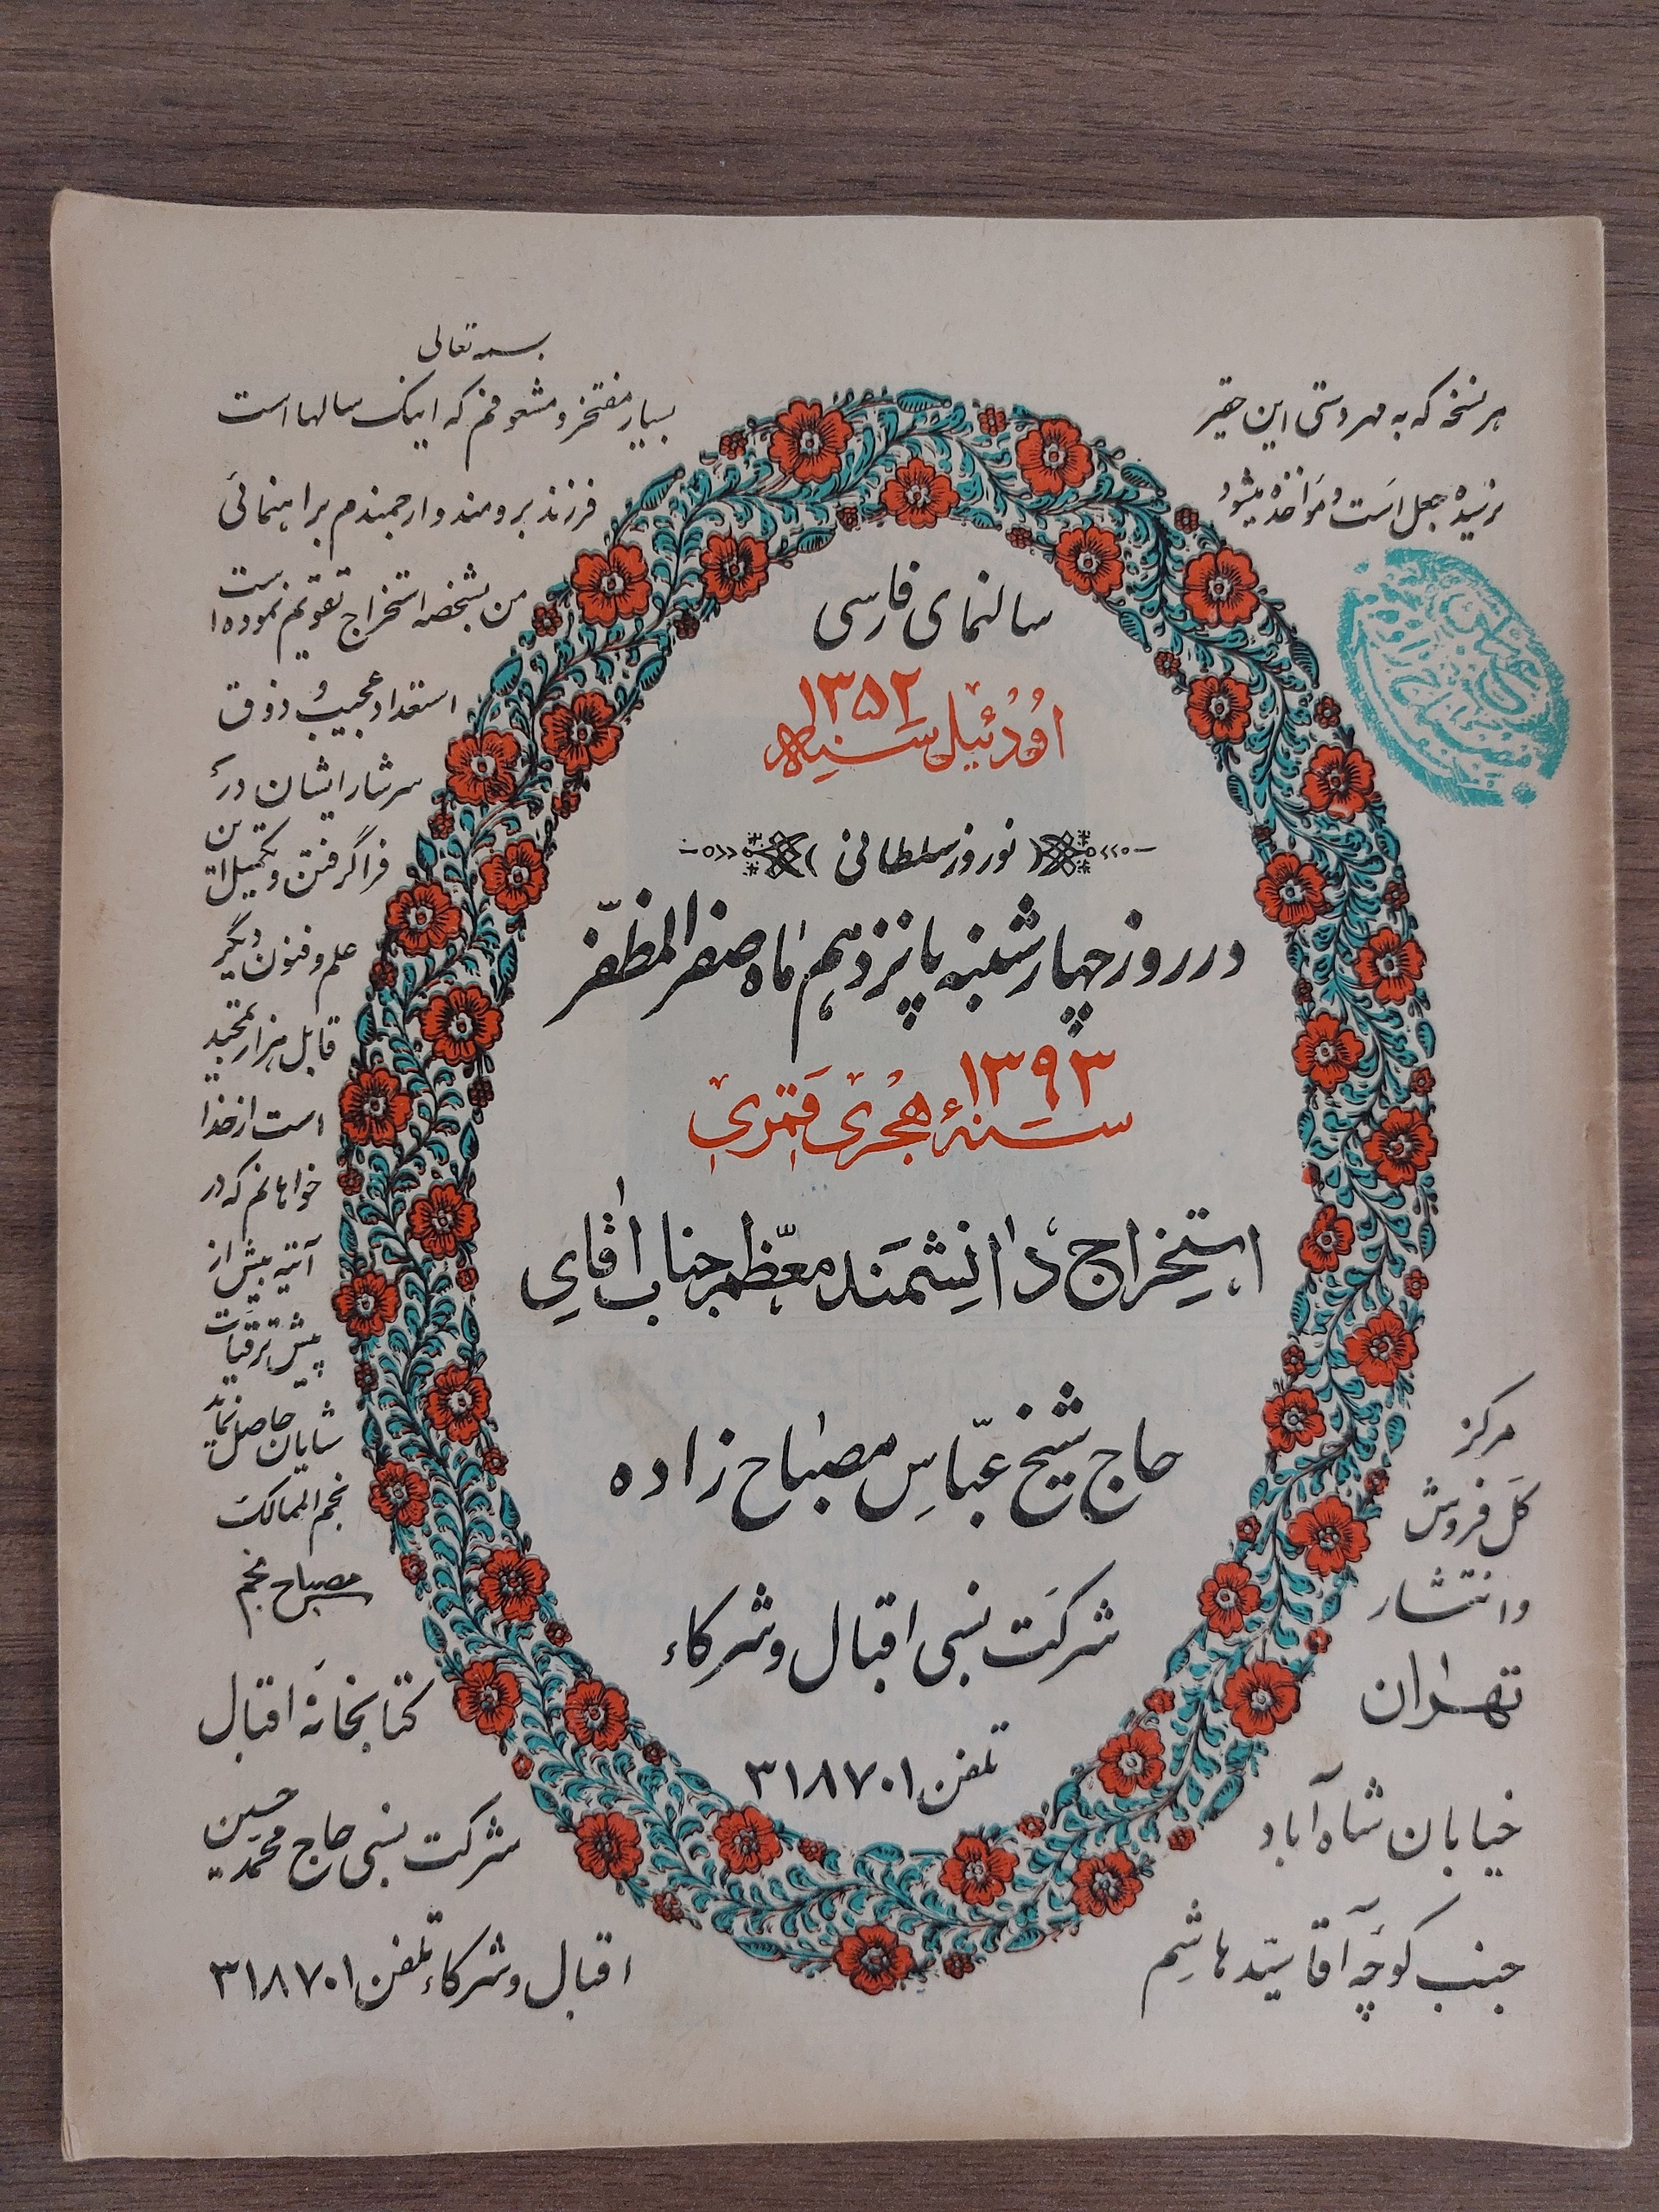 هر نسخه که به مهر دستی این حقیر
نرسیده جعل است و مؤاخذه میشود
بسمه تعالی
بسیار مفتخر و مشعوفم که اینک سالها است
فرزند برومند و ارجمندم براهنمائی
من بشخصه استخراج تقویم نموده است
استعداد عجیب و ذوق
سرشار ایشان در
فراگرفتن و تکمیل این
علم و فنون دیگر
قابل هزار تمجید
است از خدا
خواهانم که در
آتیه بیش از
پیش ترقیات
شایان حاصل نماید
نجم الممالک
مصباح منجم
سالنمای فارسی
۱۳۵۲
اودئیل سنه
نوروز سلطانی
در روز چهارشنبه پانزدهم ماه صفر المظفّر
۱۳۹۳
سنهٔ هجری قمری
استخراج دانشمند معظّم جناب آقای
حاج شیخ عبّاس مصباح زاده
شرکت نسبی اقبال و شرکاء
تلفن ۳۱۸۷۰۱
مرکز
کل فروش
و انتشار
تهران
خیابان شاه آباد
جنب کوچه آقا سیّد هاشم
کتابخانهٔ اقبال
شرکت نسبی حاج محمد حسین
اقبال و شرکاء تلفن ۳۱۸۷۰۱